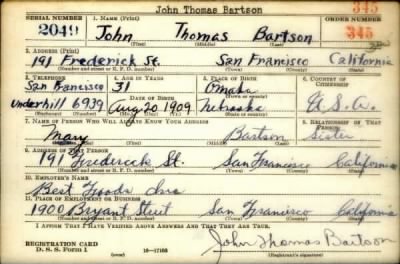 John Thomas Bartson 345
SERIAL NUMBER 1. NAME (Print) ORDER NUMBER
2049 John Thomas Bartson 345
(First) (Middle) (Last)
2. ADDRESS (Print)
191 Frederick St. San Francisco California
(Number and street or R. F. D. number) (Town) (County) (State)
3. TELEPHONE 4. AGE IN YEARS 5. PLACE OF BIRTH 6. COUNTRY OF CITIZENSHIP
San Francisco 31 Omaha
DATE OF BIRTH (Town or county)
Underhill 6939 Aug 20 1909 Nebraska U.S.A.
(Exchange) (Number) (Mo.) (Day) (Yr.) (State or country)
7. NAME OF PERSON WHO WILL ALWAYS KNOW YOUR ADDRESS 8. RELATIONSHIP OF THAT PERSON
Mary Bartson Sister
(First) (Middle) (Last)
9. ADDRESS OF THAT PERSON
191 Frederick St. San Francisco California
(Number and street or R. F. D. number) (Town) (County) (State)
10. EMPLOYER'S NAME
Best Foods Inc
11. PLACE OF EMPLOYMENT OR BUSINESS
1900 Bryant Street San Francisco California
(Number and street or R. F. D. number) (Town) (County) (State)
I AFFIRM THAT I HAVE VERIFIED ABOVE ANSWERS AND THAT THEY ARE TRUE.
REGISTRATION CARD John Thomas Bartson
D. S. S. Form 1 16-17105 (Registrant's signature)